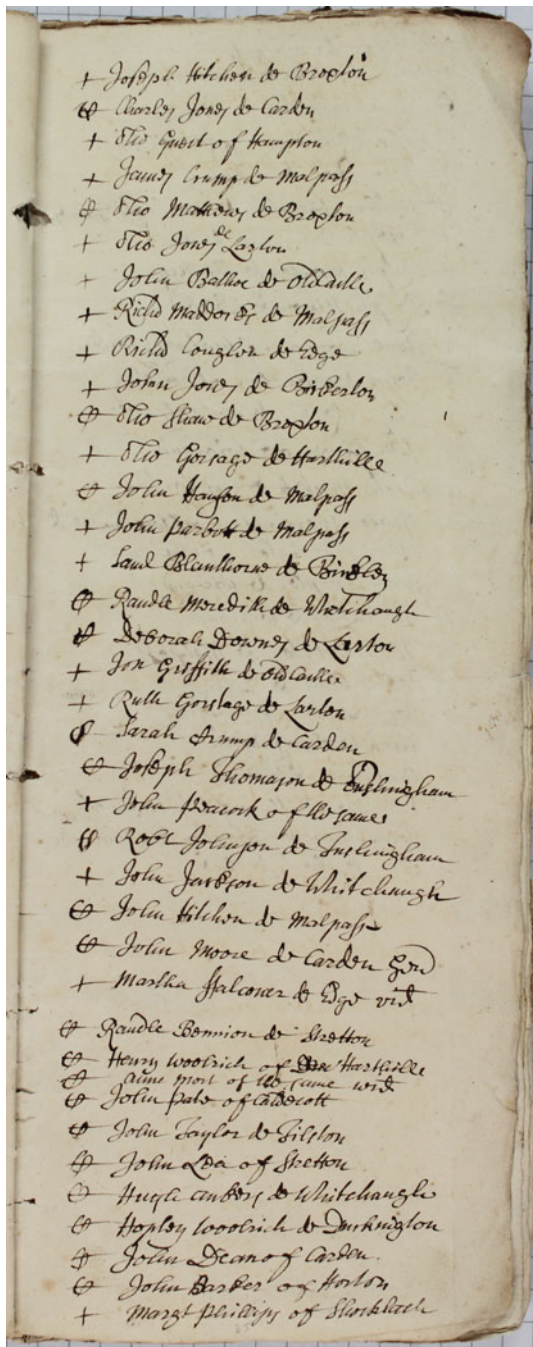 + Joseph Hitchen de Broxton
Charles Jones de Carden
+ Tho Guest of Hampton
+ James Crump de Malpass
Tho Mathews de Broxton
+ Tho Jones de Larton
+ John Balhoe de Oldcastle
+ Richd Maddocks de Malpass
+ Richd Conghon de Edge
+ John Jones de Bickerton
Tho Shaw de Broxton
+ Tho Gorsage de Harthille
John Hanson de Malpass
+ John Parbott de Malpass
+ Saml Blanthorne de Bickley
Randle Meredith de Whitchaugh
Deborah Downes de Larton
+ Jon Griffith de Oldcastle
+ Ruth Gorstage de Larton
Sarah Crump de Carden
Joseph Thomason de Tushingham
+ John Peacock of the same
Robt Johnson de Tushingham
+ John Jackson de Whitchaugh
John Hitchen de Malpass
John Moore de Carden Gen
+ Martha ffalconer de Edge vid
Randle Bennion de Stretton
Henry Woolrich of Harthille
Anne most of the same wid
John Pate of Caldecott
John Taylor de Tilston
John Lea of Stretton
Hugh ambers de Whitchaugh
Hopley Woolrich de Duckington
John Dean of Carden
John Barker of Horton
+ Margt Phillips of Shocklach